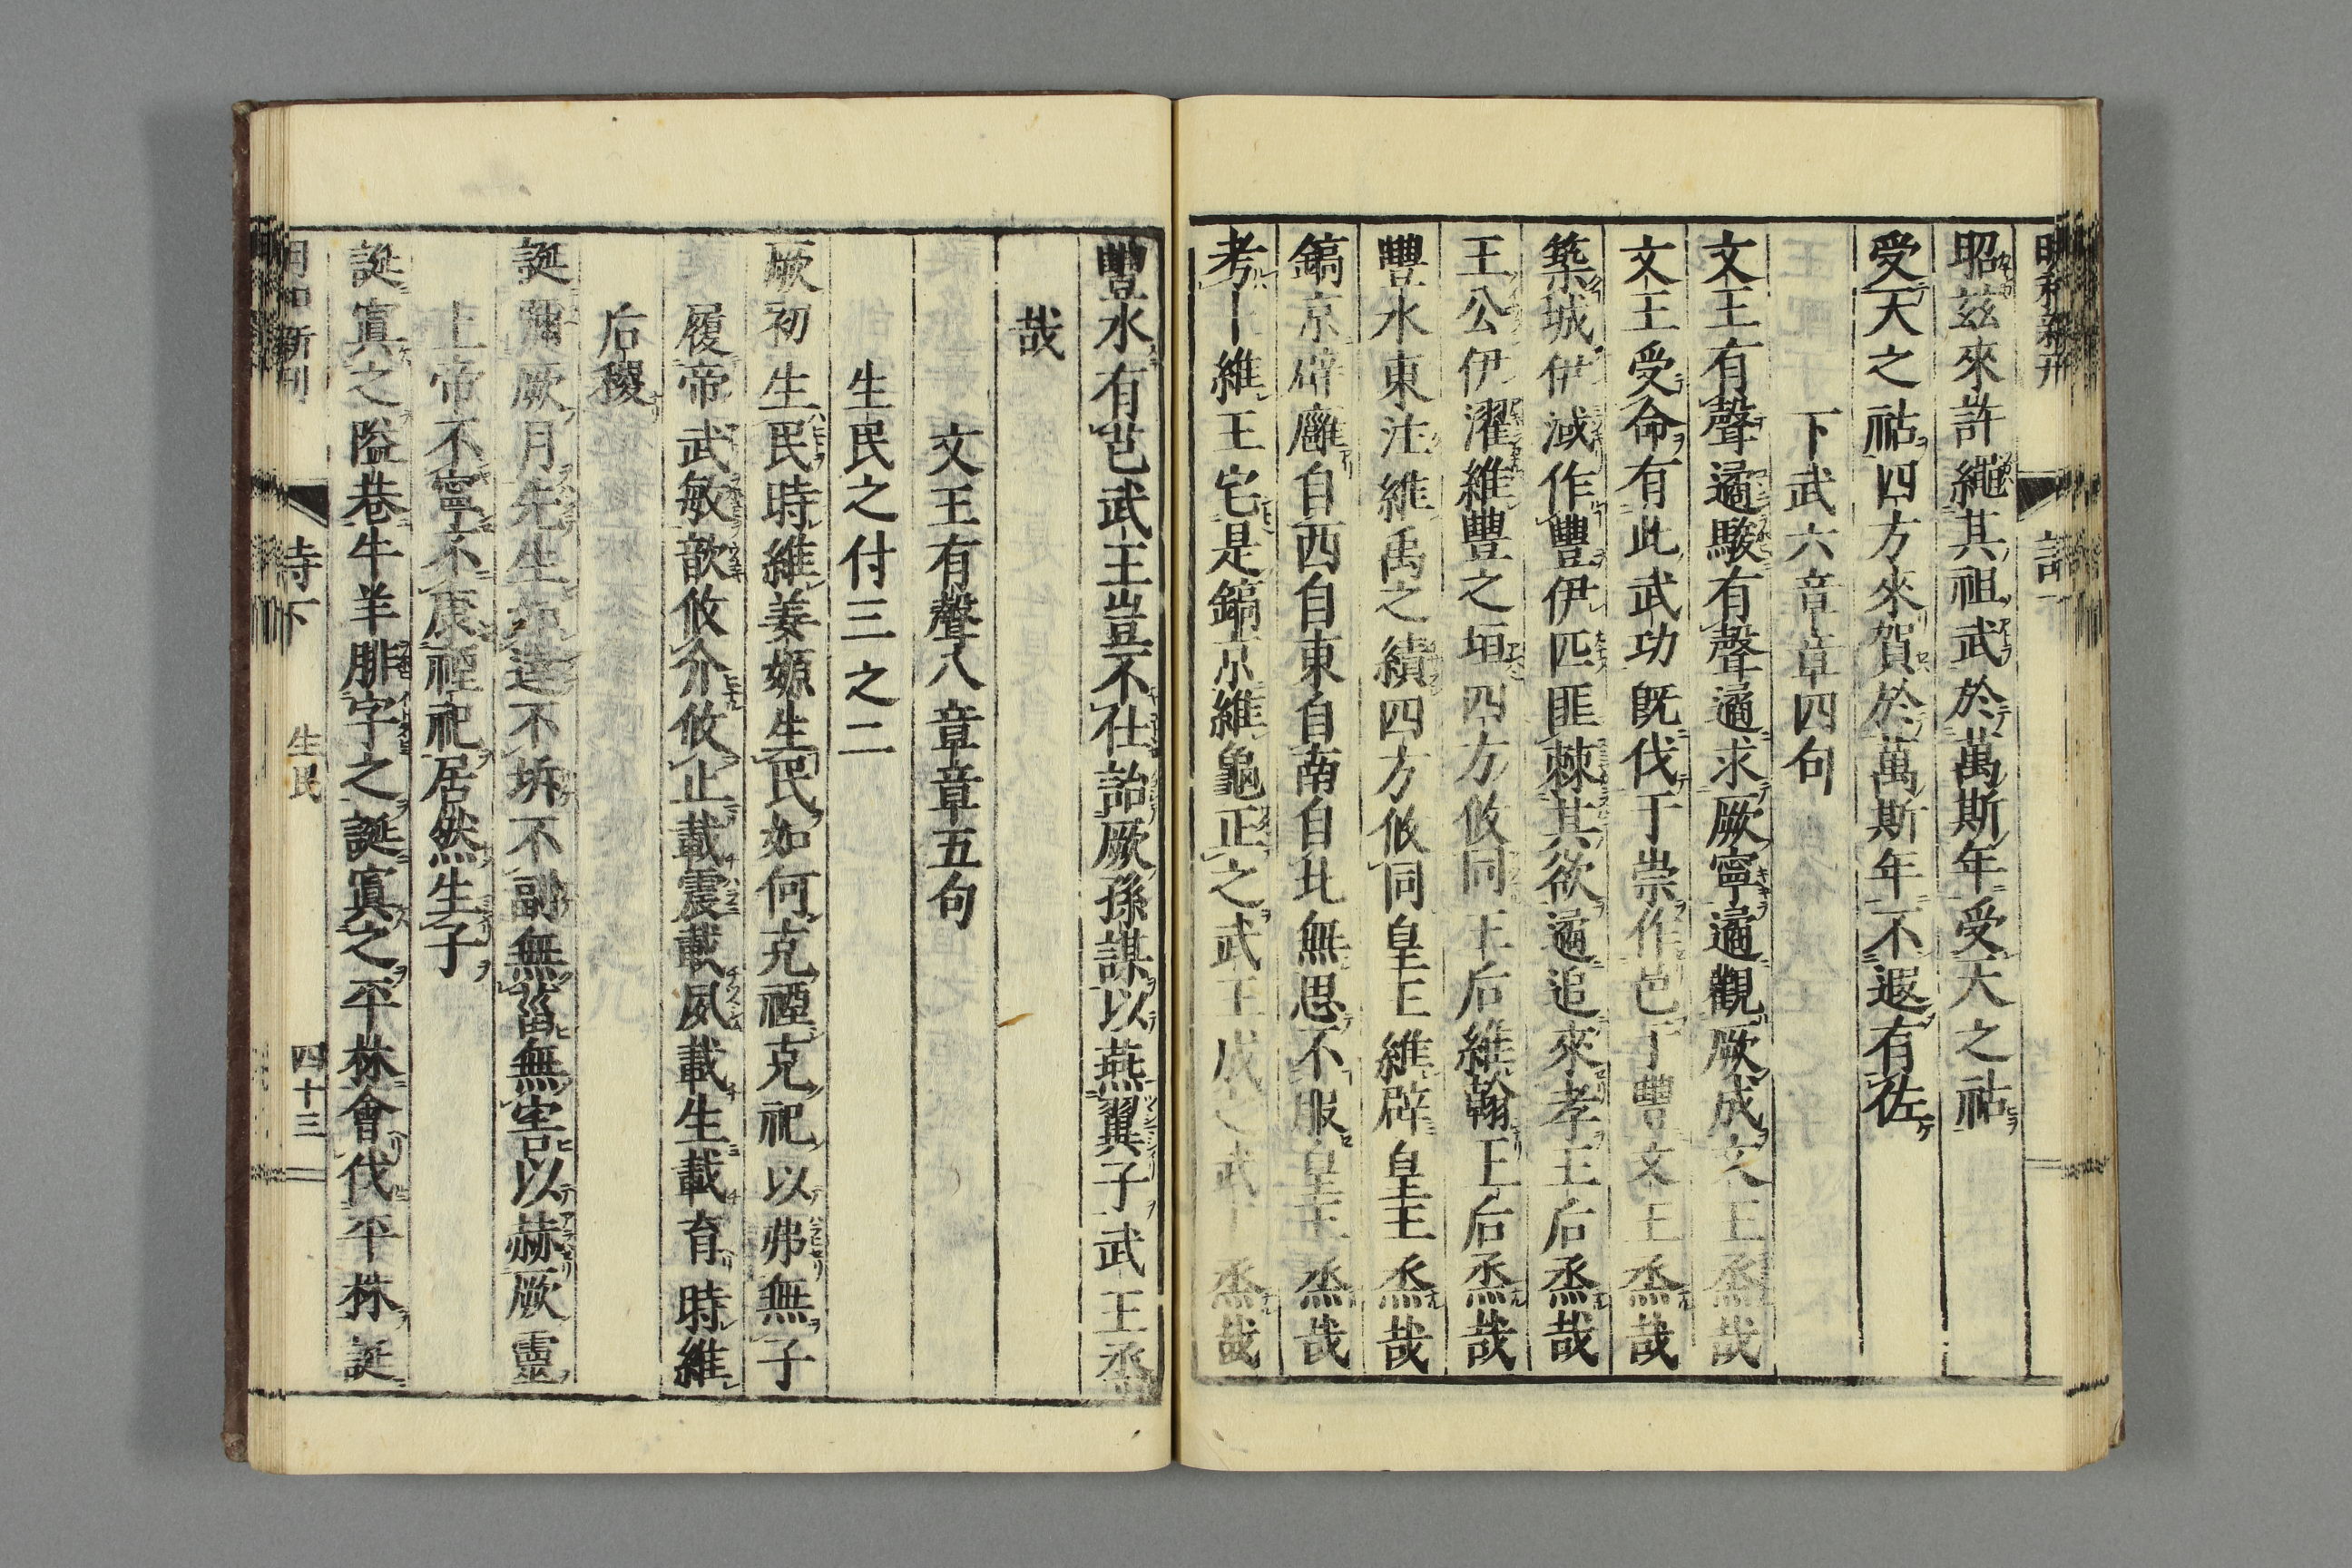 昭兹來許繩其祖武於萬斯年受天之祜
受天之祜四方來賀於萬斯年不遐有佐
下武六章章四句
文王有聲遹駿有聲遹求厥寧遹觀厥成文王烝哉
文王受命有此武功旣伐于崇作邑于豐文王烝哉
築城伊淢作豐伊匹匪棘其欲遹追來孝王后烝哉
王公伊濯維豐之垣四方攸同王后維翰王后烝哉
豐水東注維禹之績四方攸同皇王維辟皇王烝哉
鎬京辟廱自西自東自南自北無思不服皇王烝哉
考卜維王宅是鎬京維龜正之武王成之武王烝哉
豐水有芑武王豈不仕詒厥孫謀以燕翼子武王烝
哉
文王有聲八章章五句
生民之什三之二
厥初生民時維姜嫄生民如何克禋克祀以弗無子
履帝武敏歆攸介攸止載震載夙載生載育時維
后稷
誕彌厥月先生如達不坼不副無菑無害以赫厥靈
上帝不寧不康禋祀居然生子
誕寘之隘巷牛羊腓字之誕寘之平林會伐平林誕
詩下 生民 四十三